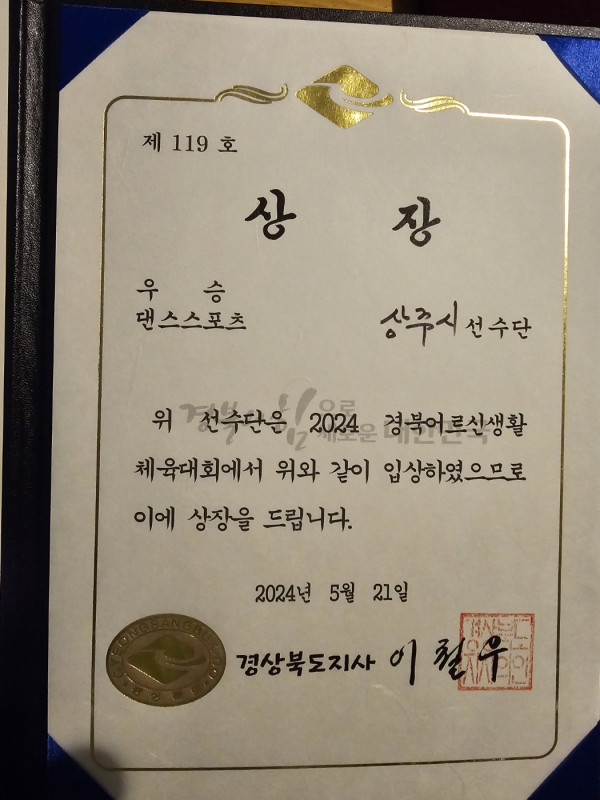 제 119 호
상 장
우 승
댄스스포츠
상주시 선수단
경북의 힘으로
새로운 대한민국
위 선수단은 2024 경북어르신생활
체육대회에서 위와 같이 입상하였으므로
이에 상장을 드립니다.
2024년 5월 21일
경상북도지사 이철우